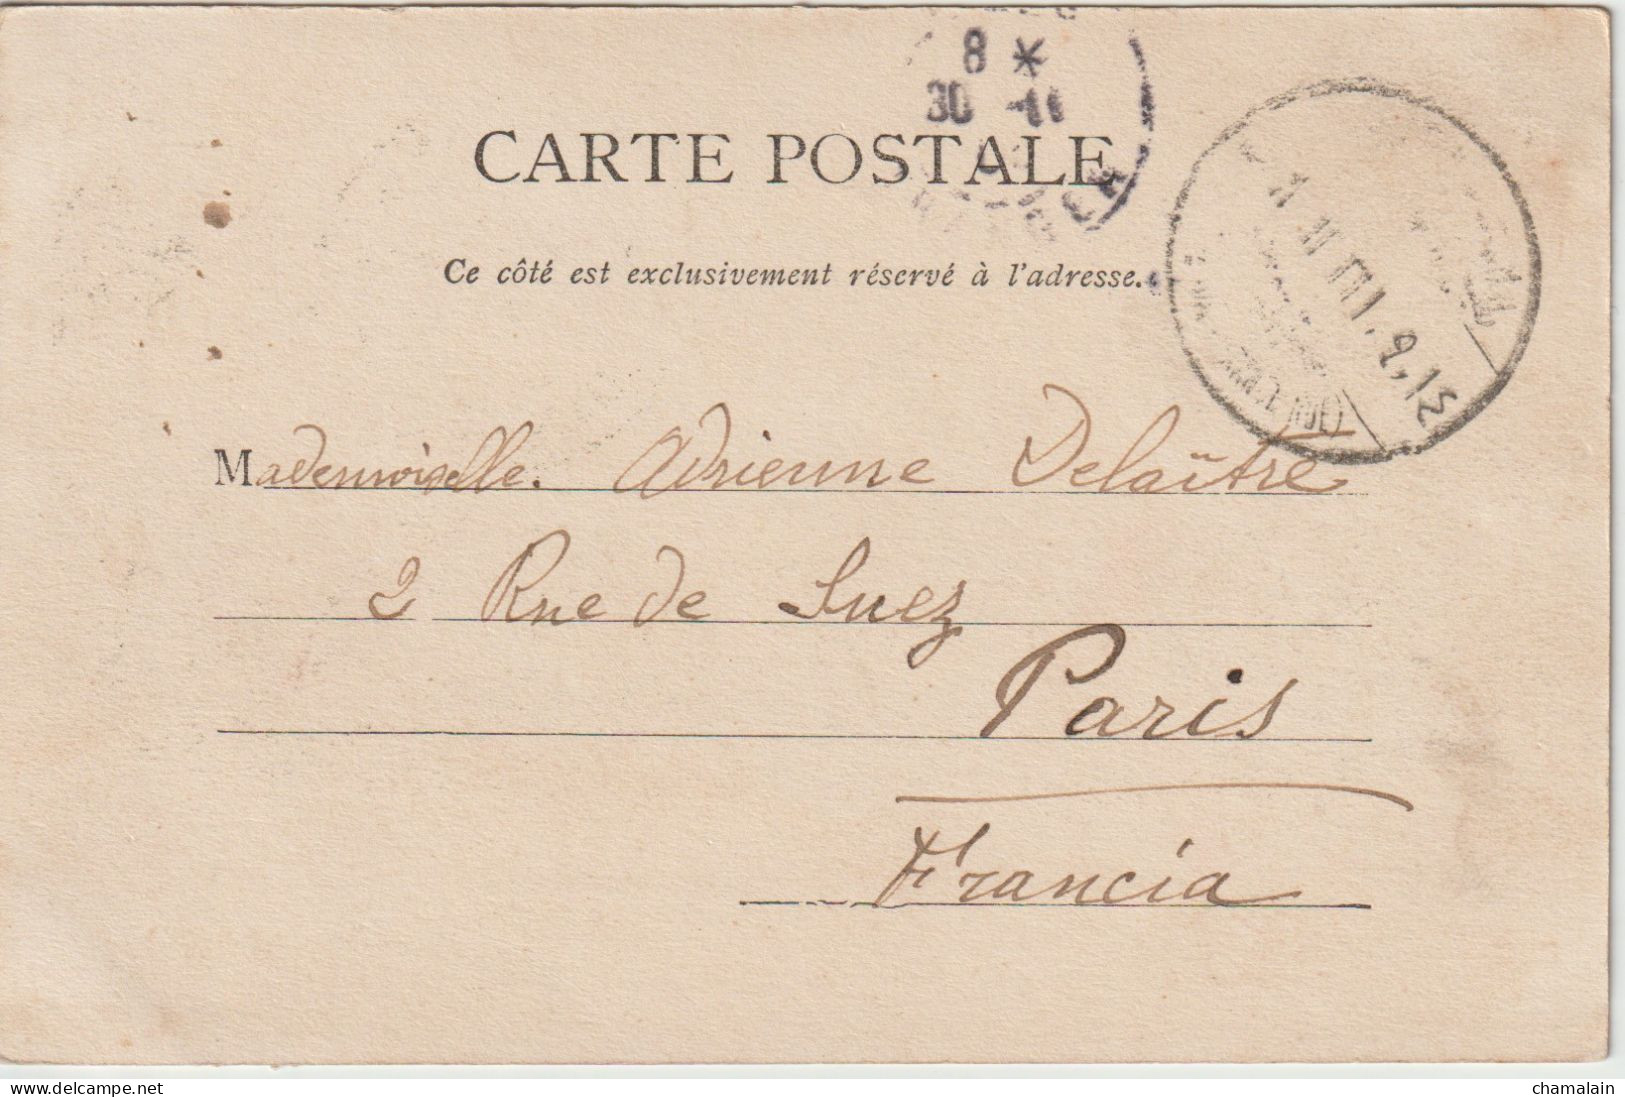 8 *
30 -11
CARTE POSTALE
Ce côté est exclusivement réservé à l'adresse.
Mademoiselle. Adrienne Delaître
2 Rue de Suez
Paris
Francia
www.delcampe.net
chamalain